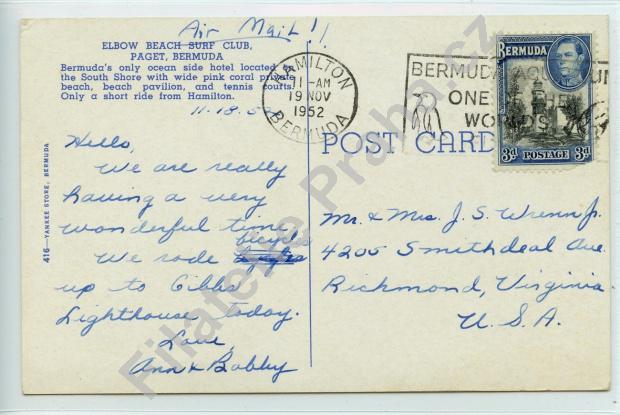 Air Mail!!
ELBOW BEACH SURF CLUB,
PAGET, BERMUDA
Bermuda's only ocean side hotel located on
the South Shore with wide pink coral private
beach, beach pavilion, and tennis courts.
Only a short ride from Hamilton.
11-18-52
Hello,
We are really
having a very
wonderful time.
We rode bicycles
up to Gibbs
Lighthouse today.
Love,
Ann & Bobby
416—YANKEE STORE, BERMUDA
HAMILTON
11-AM
19 NOV
1952
BERMUDA
BERMUDA AQU
ONE OF THE
WORLDS
BERMUDA
3d POSTAGE 3d
POST CARD
Mr. & Mrs. J. S. Wrenn Jr.
4205 Smithdeal Ave.
Richmond, Virginia
U.S.A.
Filatelie Praha.cz